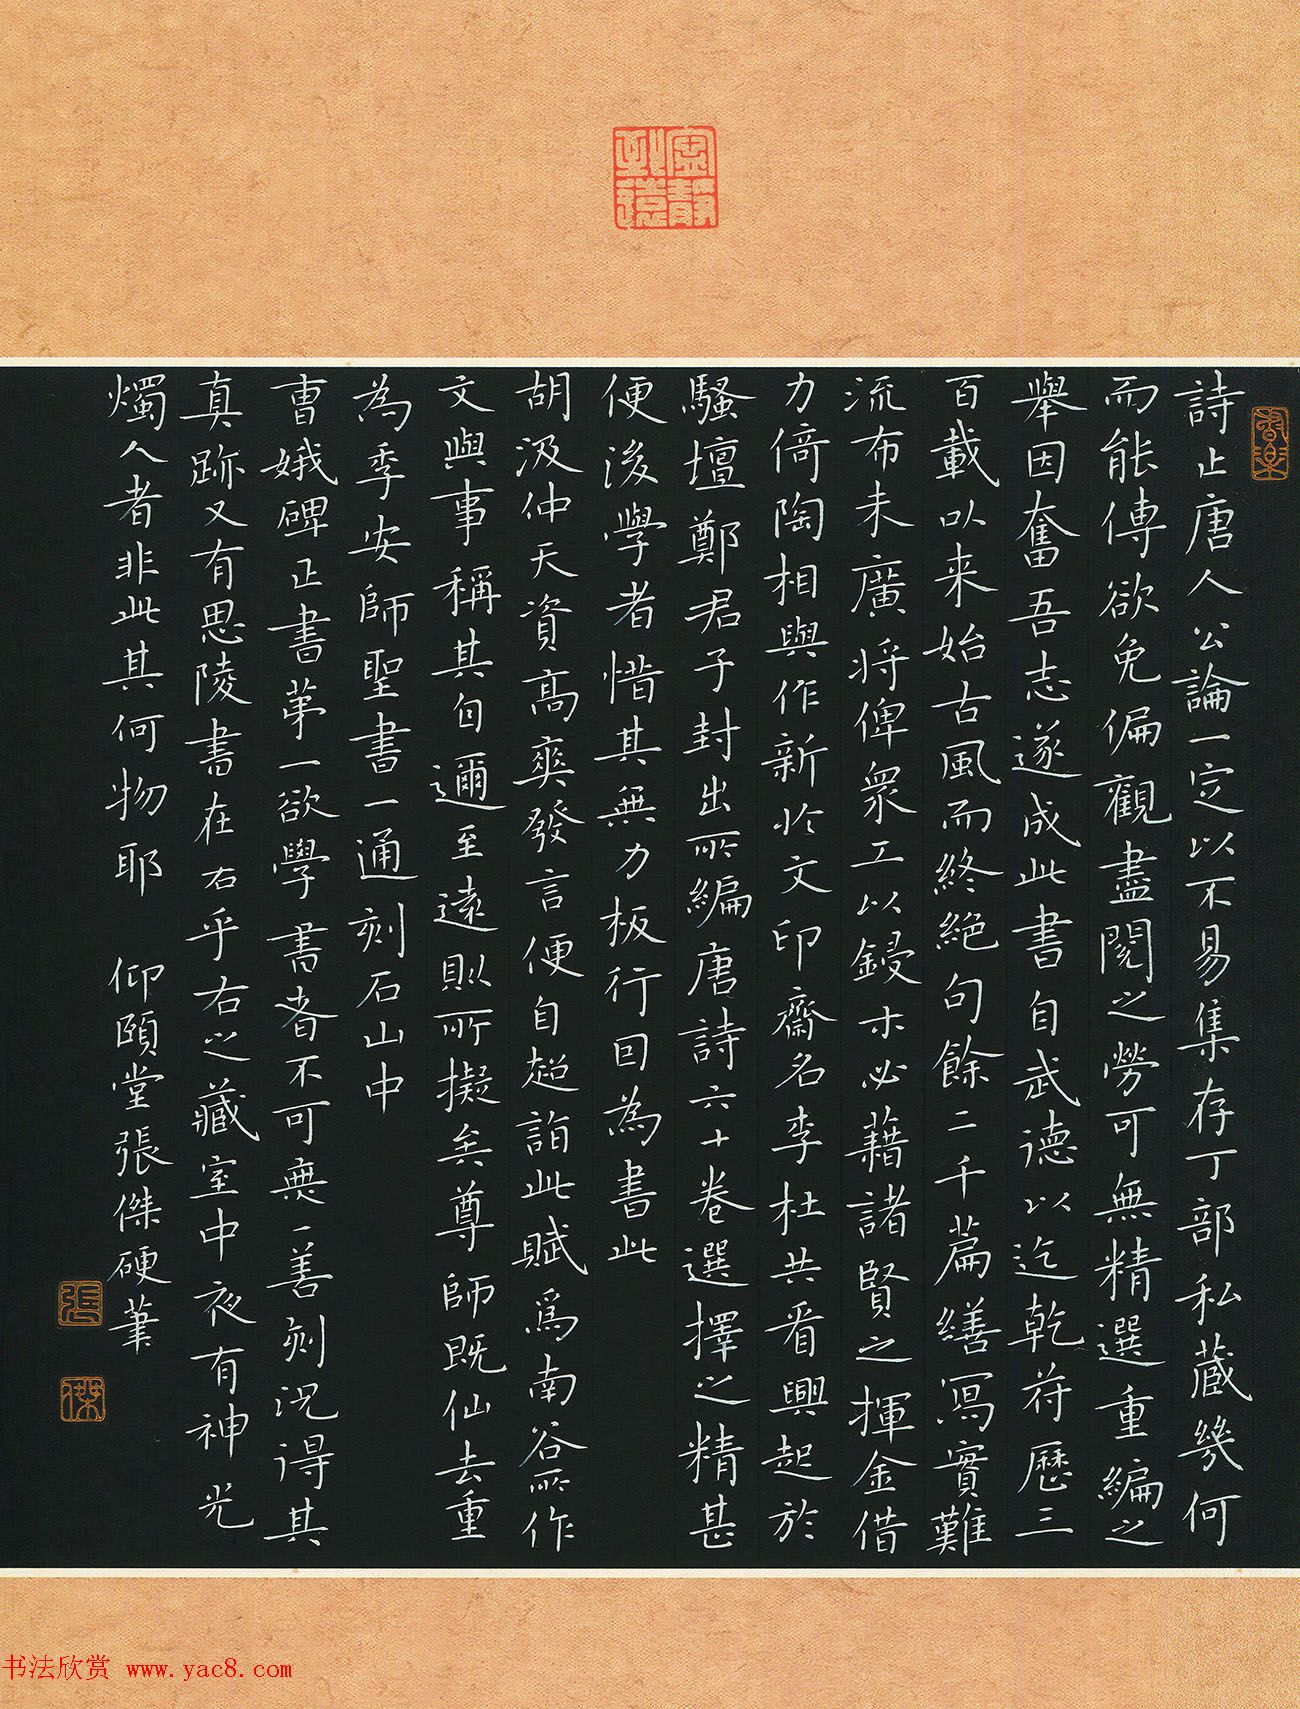 寧靜致遠
詩止唐人公論一定以不易集存丁部私藏幾何
而能傳欲免偏觀盡閱之勞可無精選重編之
舉因奮吾志遂成此書自武德以迄乾符歷三
百載以来始古風而終絕句餘二千篇繕寫實難
流布未廣將俾衆工以鋟木必藉諸賢之揮金借
力倚陶相與作新於文印齋名李杜共看興起於
騷壇鄭君子封出所編唐詩六十卷選擇之精甚
便後學者惜其無力板行回為書此
胡汲仲天資高爽發言便自超詣此賦爲南谷所作
文與事稱其自邇至遠則所擬矣尊師既仙去重
為季安師聖書一通刻石山中
曹娥碑正書第一欲學書者不可無一善刻況得其
真跡又有思陵書在右乎右之藏室中夜有神光
燭人者非此其何物耶　仰頤堂張傑硬筆
張
傑
书法欣赏 www.yac8.com